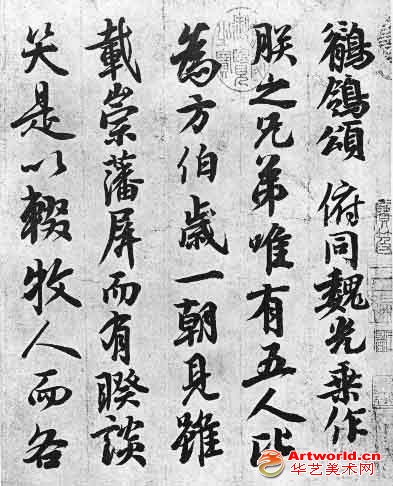 鶺鴒頌 俯同魏光乘作
朕之兄弟唯有五人比
為方伯歲一朝見雖
載崇藩屏而有睽談
笑是以輟牧人而各
Artworld.cn
华艺美术网